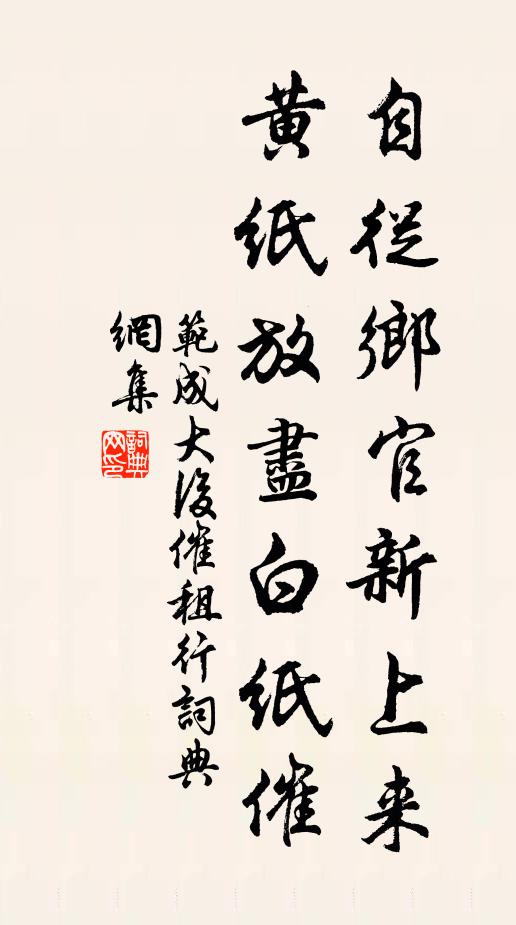 自從鄉官新上来
黄紙放盡白紙催
範成大後催租行詞典
網集
詞典
网印